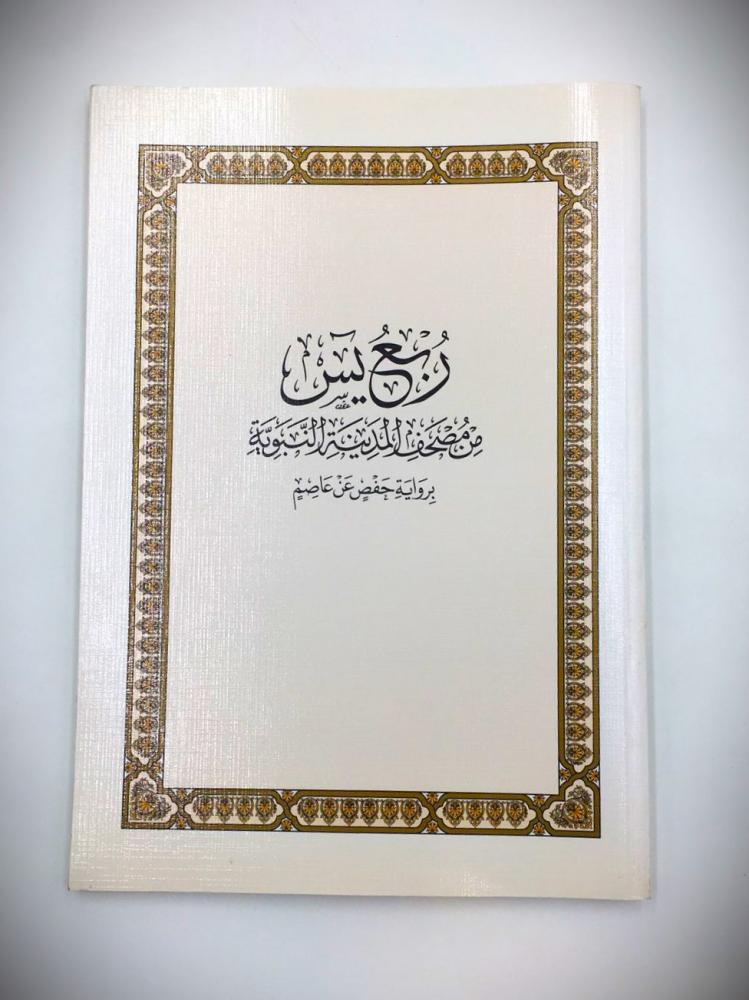 رُبْعُ يٓسٓ
مِنْ مُصْحَفِ الْمَدِينَةِ النَّبَوِيَّةِ
بِرِوَايَةِ حَفْصٍ عَنْ عَاصِمٍ